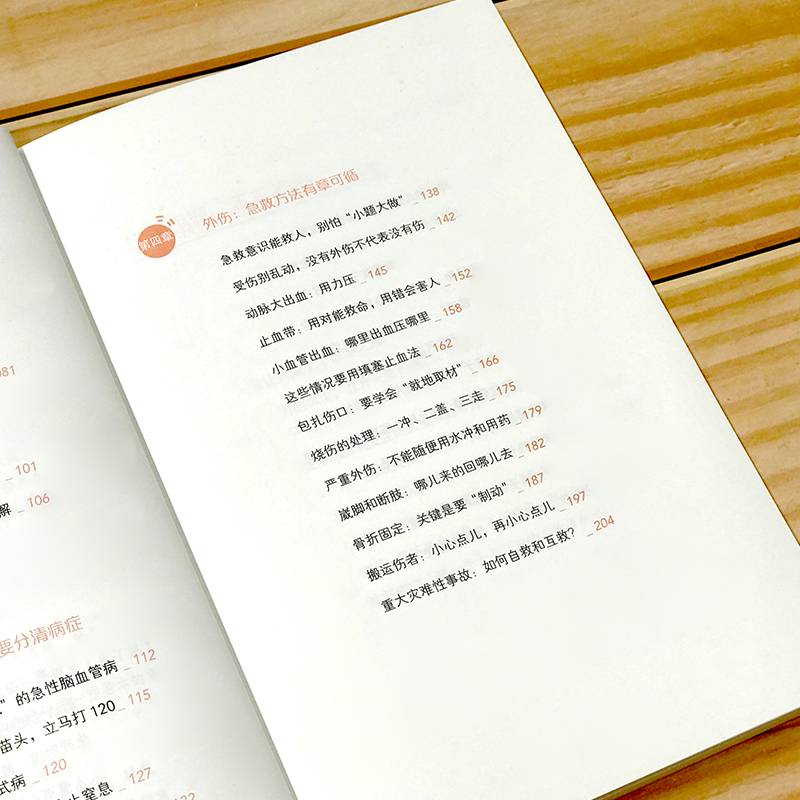 081
_101
解 _106
要分清病症
”的急性脑血管病 _112
苗头，立马打120_115
式病 _120
止窒息 _127
132
第四章
外伤：急救方法有章可循
急救意识能救人，别怕“小题大做” _138
受伤别乱动，没有外伤不代表没有伤 _142
动脉大出血：用力压 _145
止血带：用对能救命，用错会害人 _152
小血管出血：哪里出血压哪里 _158
这些情况要用填塞止血法 _162
包扎伤口：要学会“就地取材” _166
烧伤的处理：一冲、二盖、三走 _175
严重外伤：不能随便用水冲和用药 _179
崴脚和断肢：哪儿来的回哪儿去 _182
骨折固定：关键是要“制动” _187
搬运伤者：小心点儿，再小心点儿 _197
重大灾难性事故：如何自救和互救？ _204